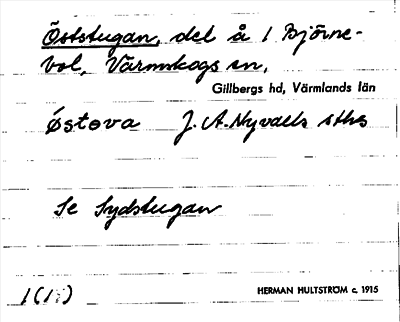 Öststugan, del å 1 Björne-
bol, Värmskogs sn,
Gillbergs hd, Värmlands län
östova J. A. Nyvaels sths
Se Sydstugan
HERMAN HULTSTRÖM c. 1915